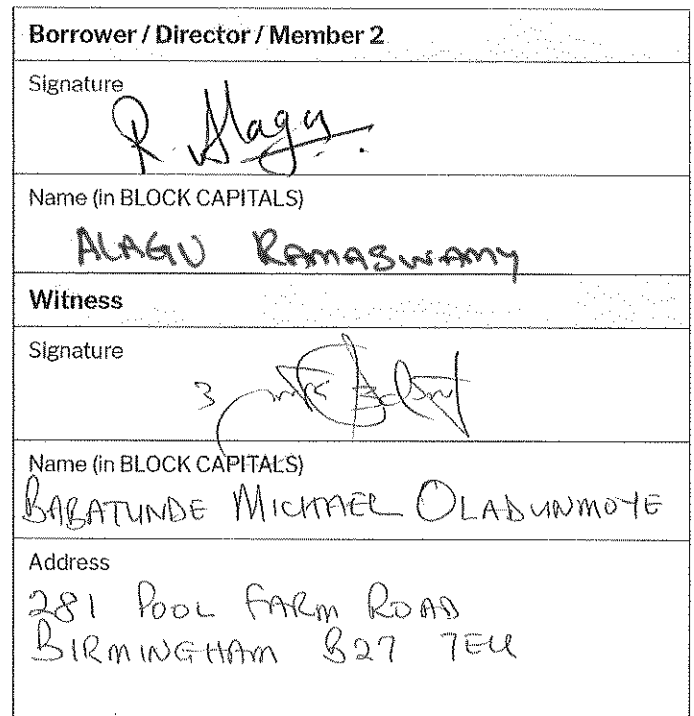 Borrower / Director / Member 2
Signature
R. Alagu
Name (in BLOCK CAPITALS)
ALAGU RAMASWAMY
Witness
Signature
Name (in BLOCK CAPITALS)
BABATUNDE MICHAEL OLADUNMOYE
Address
281 POOL FARM ROAD
BIRMINGHAM B27 7EU